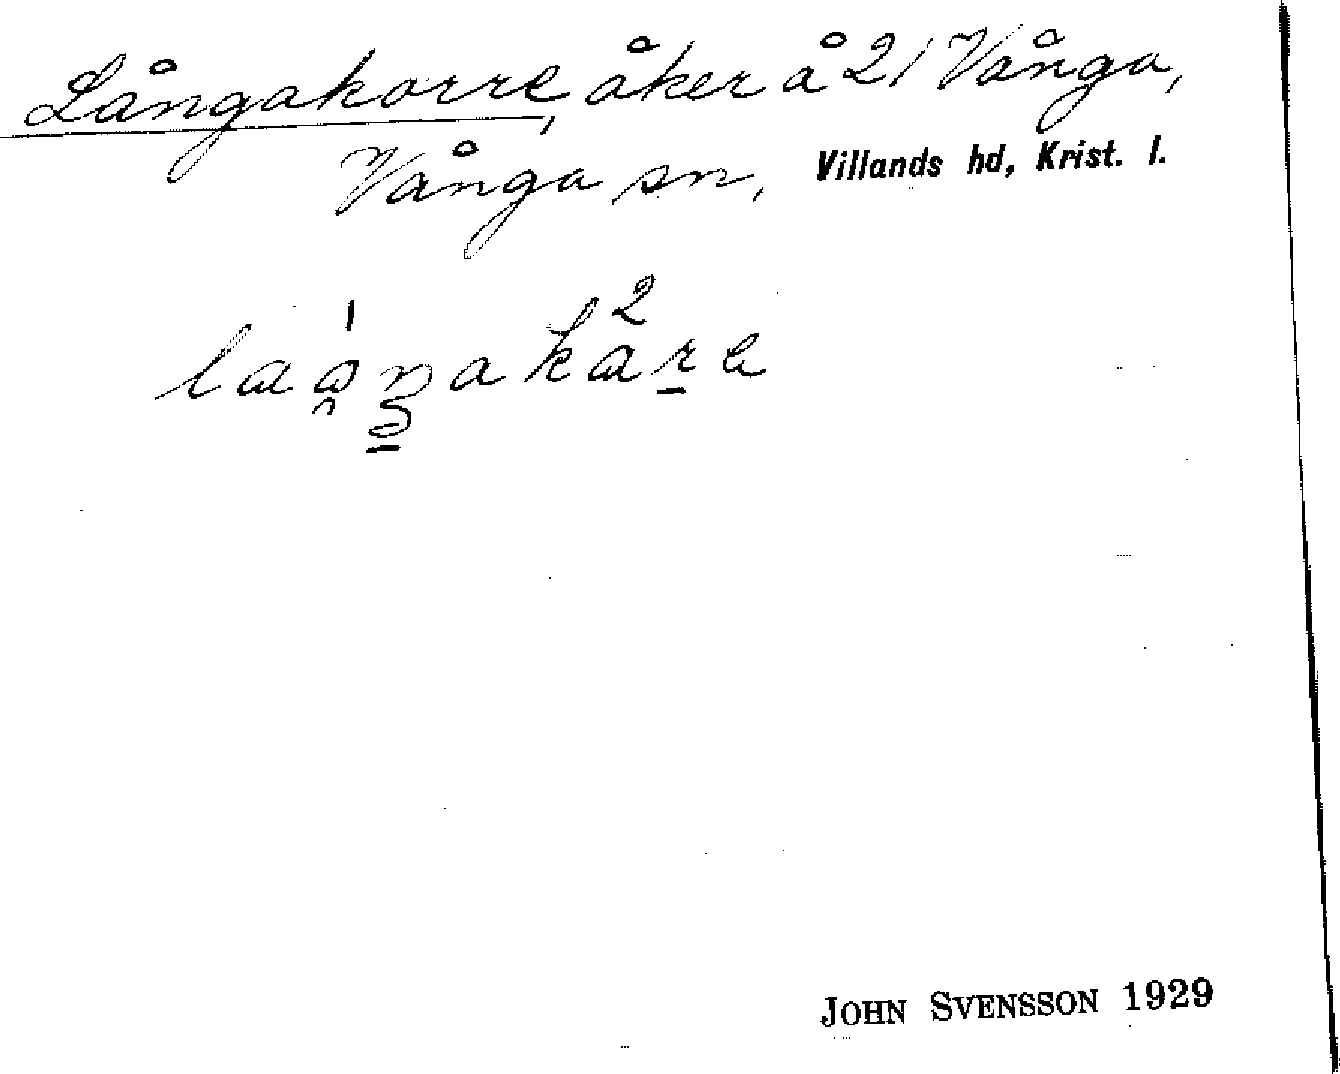 Långakorre, åker å 21 Vånga,
Vånga sn, Villands hd, Krist. l.
JOHN SVENSSON 1929